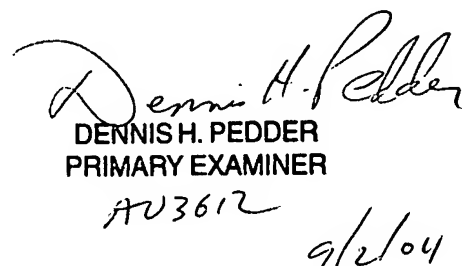 Dennis H. Pedder
DENNIS H. PEDDER
PRIMARY EXAMINER
AU3612
9/2/04